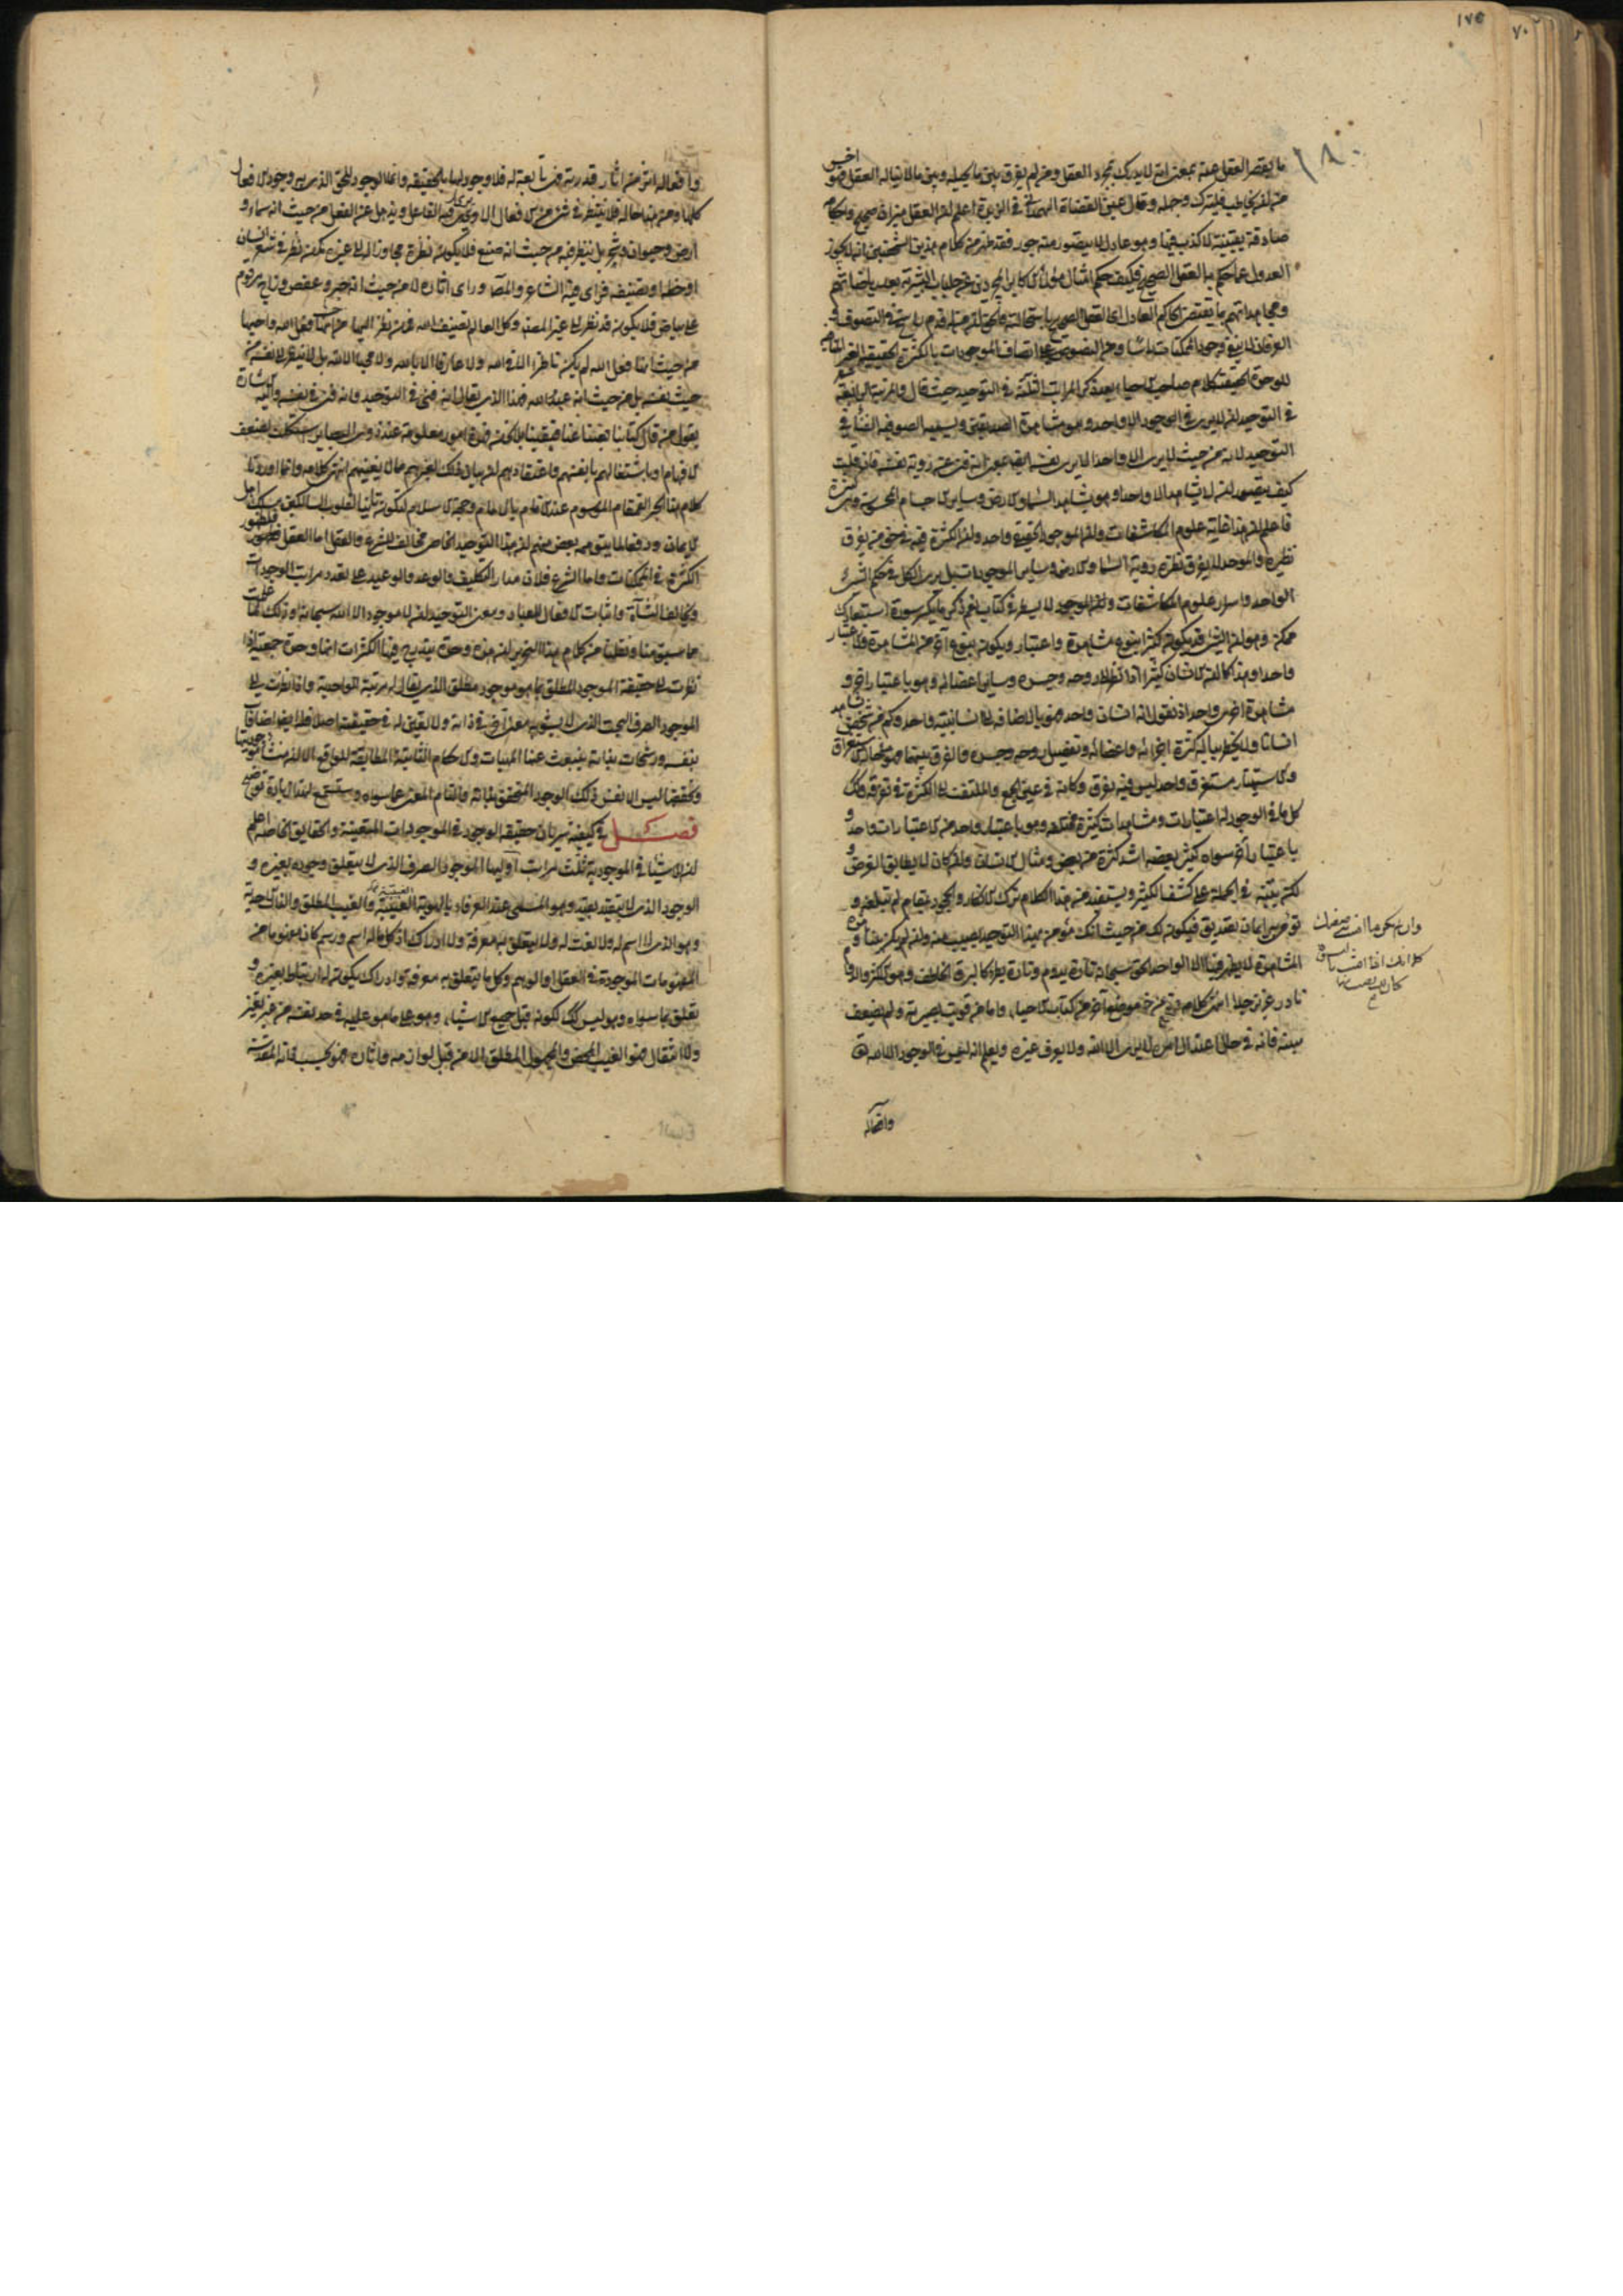 ١٧٥
١٨٠
ما يقصر العقل عنه بمعنى انه لا يدرك بمجرد العقل ومن لم يفرق بين ما يحيله وبين ما لا يناله العقل فهو اخس
من ان يخاطب فليترك وجهله وقال عين القضاة الهمداني في الزبدة اعلم ان العقل ميزان صحيح واحكامه
صادقة يقينية لا كذب فيها وهو عادل لا يتصور منه جور فقد ظهر من كلام هذين الشيخين انه لا يجوز
العدول عما حكم به العقل الصحيح فكيف حكم امثال هؤلاء الاكابر المجردين عن جلباب البشرية بعد رياضاتهم
ومجاهداتهم بما يقضي الحاكم العادل اي العقل الصحيح باستحالته فالحق ان من له قدم راسخ في التصوف و
العرفان لا ينفي وجود الممكنات راسا ومن النصوص على اتصاف الموجودات بالكثرة الحقيقية الغير المنافية
للوحدة الحقيقية كلام صاحب الاحياء بعد ذكر المراتب الثلثة في التوحيد حيث قال والمرتبة الرابعة
في التوحيد ان لا يرى في الوجود الا واحدا وهو مشاهدة الصديقين ويسميه الصوفية الفناء في
التوحيد لانه من حيث لا يرى الا واحدا لا يرى نفسه ايضا بمعنى انه فنى عن رؤية نفسه فان قلت
كيف يتصور ان لا يشاهد الا واحدا وهو يشاهد السماء والارض وسائر الاجسام المحسوسة وهي كثيرة
فاعلم ان هذا غاية علوم المكاشفات وان الموجود الحقيقي واحد وان الكثرة فيه في حق من يفرق
نظره والموحد لا يفرق نظره رؤية السماء والارض وسائر الموجودات بل يرى الكل في حكم الشيء
الواحد واسرار علوم المكاشفات لا يسطر في كتاب نعم ذكر ما يكسر سورة استبعادك
ممكن وهو ان الشيء قد يكون كثيرا بنوع مشاهدة واعتبار ويكون بنوع آخر من المشاهدة والاعتبار
واحدا وهذا كما ان الانسان كثيرا اذا نظر الى روحه وجسده وسائر اعضائه وهو باعتبار اخر و
مشاهدة اخرى واحد اذ نقول انه انسان واحد فهو بالاضافة الى الانسانية واحد وكم من شخص يشاهد
انسانا ولا يخطر بباله كثرة اجزائه واعضائه وتفصيل روحه وجسده والفرق بينهما وهو في حالة الاستغراق
والاستهتار مستغرق واحد ليس فيه تفرق وكانه في عين الجمع والملتفت الى الكثرة في تفرقة وكذلك
كل ما في الوجود له اعتبارات ومشاهدات كثيرة مختلفة وهو باعتبار واحد من الاعتبارات واحد و
باعتبار آخر سواه كثير بعضه اشد كثرة من بعض ومثال الانسان وان كان لا يطابق الغرض و
لكن ينبه في الجملة على كشف الكثير ويستفيد من هذا الكلام ترك الانكار والجحود بمقام لم تبلغه و
تؤمن به ايمان تصديق فيكون لك من حيث انك مؤمن بهذا التوحيد نصيب منه وان لم يكن
المشاهدة لا يظهر فيها الا الواحد الحق سبحانه تارة يدوم وتارة يطرأ كالبرق الخاطف وهو الاكثر والدوام
نادر عزيز جدا انتهى كلامه وقال في موضع آخر من كتاب الاحياء واما من قويت بصيرته ولم يضعف
منته فانه في حال اعتدال امره لا يرى الا الله ولا يعرف غيره ويعلم انه ليس في الوجود الا الله تعالى
وافعاله
وافعاله اثر من آثار قدرته فهي تابعة له فلا وجود لها بالحقيقة وانما الوجود للحق الذي به وجود الافعال
كلها ومن هذا حاله فلا ينظر في شيء من الافعال الا ويرى فيه الفاعل ويذهل عن الفعل من حيث انه سماء و
ارض وحيوان وشجر بل ينظر فيه من حيث انه صنع فلا يكون نظره مجاوزا له الى غيره كمن نظر في شعر انسان
او خطه او تصنيفه فراى فيه الشاعر والمصنف وراى اثاره لا من حيث انه حبر وعفص وزاج مرقوم
على بياض فلا يكون قد نظر الى غير المصنف وكل العالم تصنيف الله فمن نظر اليها من حيث انها فعل الله واحبها
من حيث انها فعل الله لم يكن ناظرا الا في الله ولا عارفا الا بالله ولا محبا الا لله بل لا ينظر الى نفسه من
حيث نفسه بل من حيث انه عبد الله فهذا الذي يقال انه فنى في التوحيد وانه فنى في نفسه واليه الاشارة
بقول من قال كنا بنا ففنينا عنا فبقينا بلا نحن فهذه امور معلومة عند ذوي البصاير اشكلت لضعف
الافهام او باشتغالهم بانفسهم واعتقادهم ان بيان ذلك لغيرهم مما لا يعنيهم انتهى كلامه وانما اوردنا
كلام هذا البحر القمقام الموسوم عند الانام بالامام وحجة الاسلام لتكون تليينا لقلوب السالكين مسلك اهل
الايمان ودفعا لما يتوهمه بعض منهم ان هذا التوحيد الخاصي مخالف للشرع والعقل اما العقل فلظهور
الكثرة في الممكنات واما الشرع فلان مدار التكليف والوعد والوعيد على تعدد مراتب الوجودات
وتخالف النشآت واثبات الافعال للعباد ومعنى التوحيد ان لا موجود الا الله سبحانه وذلك لما علمت
مما سبق منا ونقلنا من كلام هذا النحرير ان هذه وحدة يندرج فيها الكثرات انها وحدة جمعية اذا
نظرت الى حقيقة الموجود المطلق بما هو موجود مطلق الذي يقال له مرتبة الواحدية واذا نظرت الى
الموجود الصرف البحت الذي لا يشوبه معنى آخر في ذاته ولا تعين له في حقيقته اصلا
بنفسه ورشحات بذاته ينبعث عنها المهيات والاحكام الثابتة المطابقة للواقع الا ان منشأ وجوديتها
وتحققها ليس الا نفس ذلك الوجود المتحقق بذاته والتام المغني عما سواه وستسمع لهذا زيادة توضيح
فصل في كيفية سريان حقيقة الوجود في الموجودات المتعينة والحقايق الخاصة اعلم
ان للاشياء في الموجودية ثلث مراتب اوليها الموجود الصرف الذي لا يتعلق وجوده بغيره و
الوجود الذي لا يتقيد بقيد وهو المسمى عند العرفاء بالهوية الغيبية والغيب المطلق والذات الاحدية
وهو الذي لا اسم له ولا نعت له ولا يتعلق به معرفة ولا ادراك اذ كل ما له اسم ورسم كان مفهوما من
المفهومات الموجودة في العقل او الوهم وكل ما يتعلق به معرفة وادراك يكون له ارتباط بغيره و
تعلق بما سواه وهو ليس كك لكونه قبل جميع الاشياء وهو على ما هو عليه في حد نفسه من غير تغير
ولا انتقال فهو الغيب المحض والمجهول المطلق الا من قبل لوازمه واثاره فهو بحسب ذاته المقدسة